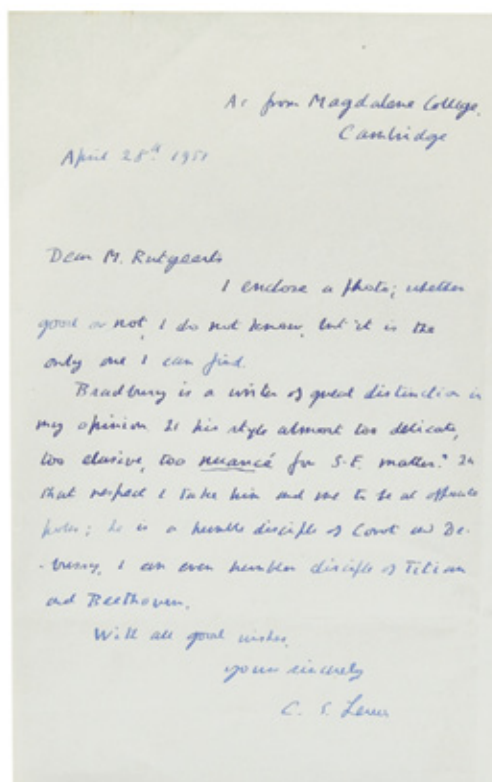 As from Magdalene College,
Cambridge
April 28th 1951
Dear M. Rutgeerts
I enclose a photo; whether
good or not, I do not know, but it is the
only one I can find.
Bradbury is a writer of great distinction in
my opinion. Is his style almost too delicate,
too elusive, too nuancé for S-F. matter? In
that respect I take him and me to be at opposite
poles; he is a humble disciple of Corot and De-
-bussy, I an even humbler disciple of Titian
and Beethoven.
With all good wishes,
yours sincerely
C. S. Lewis